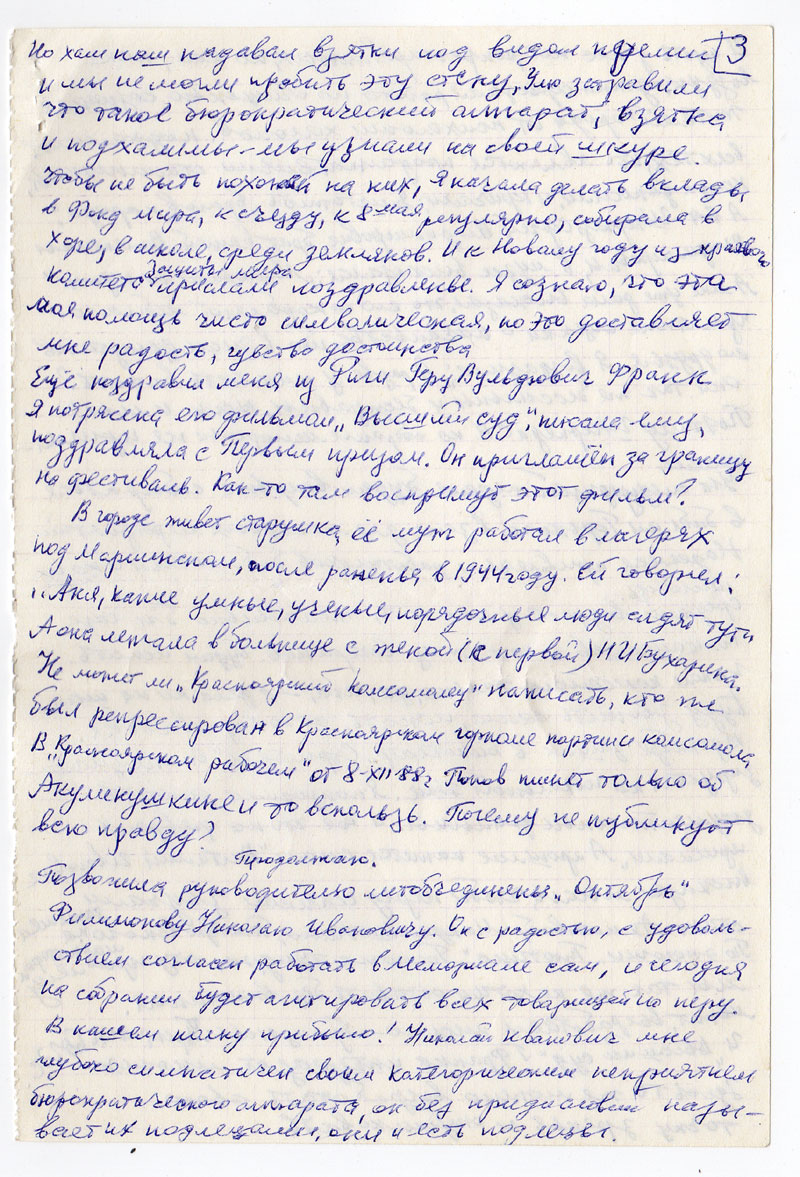 Но хам наш надавал взятки под видом премии 3
и мы не могли пробить эту стену, Ужо затравили
что такое бюрократический аппарат, взятка
и подхалимы - мы узнали на своей шкуре.
Чтобы не быть похожей на них, я начала делать вклады
в Фонд мира, к съезду, к 8 мая регулярно, собирала в
хоре, в школе, среди земляков. И к Новому году из краевого
комитета защиты мира прислали поздравленье. Я сознаю, что эта
моя помощь чисто символическая, но это доставляет
мне радость, чувство достоинства
Ещё поздравил меня из Риги Герц Вульфович Франк
Я потрясена его фильмом „Высший суд", писала ему,
поздравляла с Первым призом. Он приглашён за границу
на фестиваль. Как-то там воспримут этот фильм?
В городе живет старушка, её муж работал в лагерях
под Мариинском, после раненья в 1944 году. Ей говорил:
„Аня, какие умные, ученые, порядочные люди сидят тут"
А она лежала в больнице с женой (к первой) Н И Бухарина.
Не может ли „Красноярский комсомолец" написать, кто же
был репрессирован в Красноярском горкоме партии и комсомола
В „Красноярском рабочем" от 8-XII-88г Попов пишет только об
Акулинушкине и то вскользь. Почему не публикуют
всю правду?
Продолжаю.
Позвонила руководителю литобъединенья „Октябрь"
Филимонову Николаю Ивановичу. Он с радостью, с удоволь-
ствием согласен работать в Мемориале сам, и сегодня
на собрании будет агитировать всех товарищей по перу.
В нашем полку прибыло! Николай Иванович мне
глубоко симпатичен своим категорическим неприятием
бюрократического аппарата, он без предисловий назы-
вает их подлецами, они и есть подлецы.